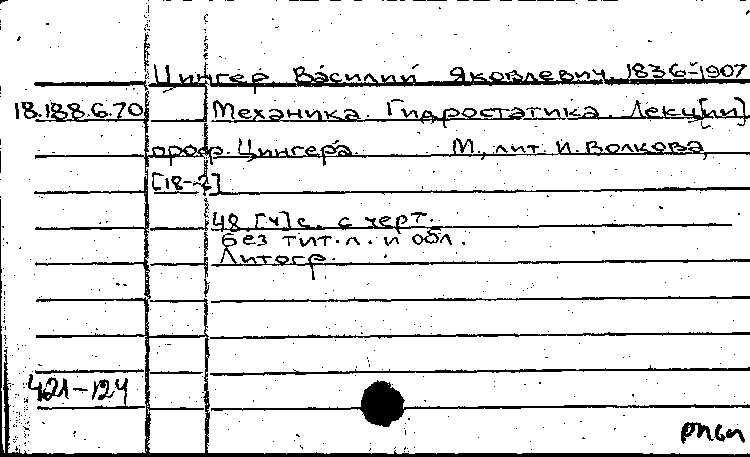 Цингер Василий Яковлевич, 1836-1907
18.188.6.70 Механика. Гидростатика. Лекц[ии]
проф. Цингера. М., лит. И. Волкова,
[18-?]
48 [4] с. с черт.
без тит. л. и обл.
Литогр.
421-124